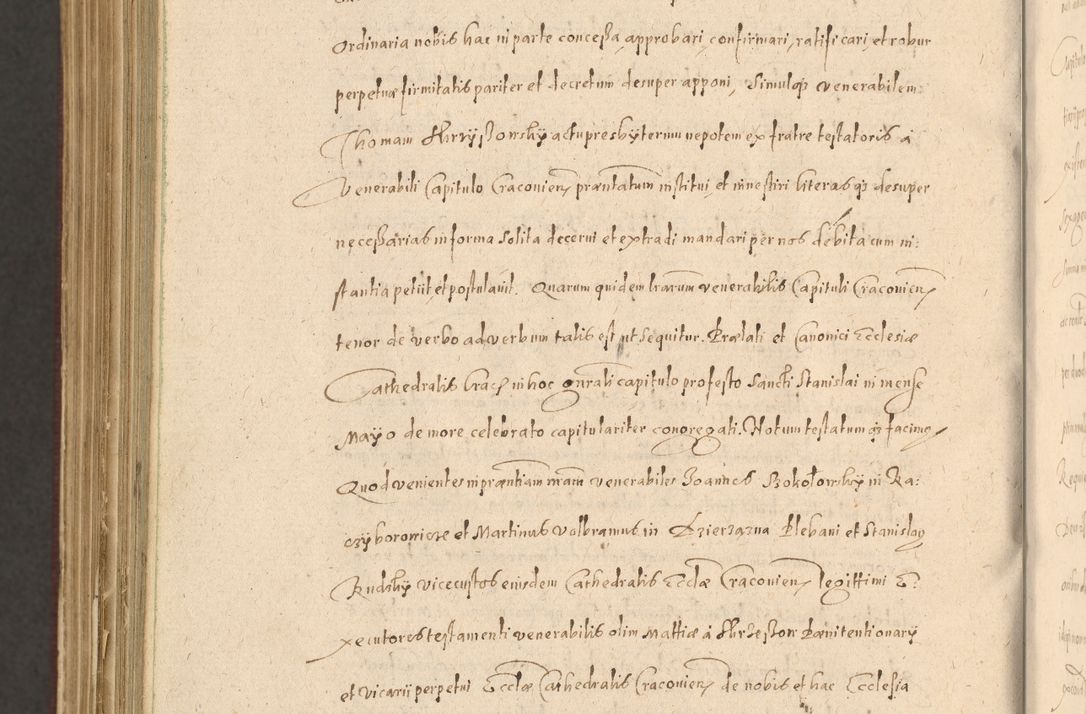 Ordinaria nobis hac in parte conceßa, approbari, confirmari, ratificari, et robur
perpetuæ firmitatis pariter et decretum desuper apponi, Simulq3 venerabilem
Thomam Skrzyszowsky actu presbyterum nepotem ex fratre testatoris à
Venerabili Capitulo Cracovien præntatum institui, et investiri literas q3 desuper
neceßarias in forma solita decerni et extradi mandari per nos debita cum in:
stantia petiit, et postulavit. Quarum quidem lrarum venerabilis Capituli Cracovien
tenor de verbo ad verbum talis est ut sequitur. Prælati et Canonici Ecclesiæ
Cathedralis Crac in hoc gnrali capitulo pro festo Sancti Stanislai in mense
Mayo de more celebrato capitulariter congregati. Notum testatum q3 facimq
Quod venientes in præntiam nram venerabiles Joannes Sokołowsky in Ra:
czyborowice et Martinus Volbramus in Dzierzazna Plebani et Stanislaq
Rudsky vicecustos eiusdem Cathedralis Ecclæ Cracovien legittimi E:
xecutores testamenti venerabilis olim Matthiæ à Skrzeszow Pænitentionary
et vicarii perpetui Ecclæ Cathedralis Cracovien de nobis et hac Ecclesia